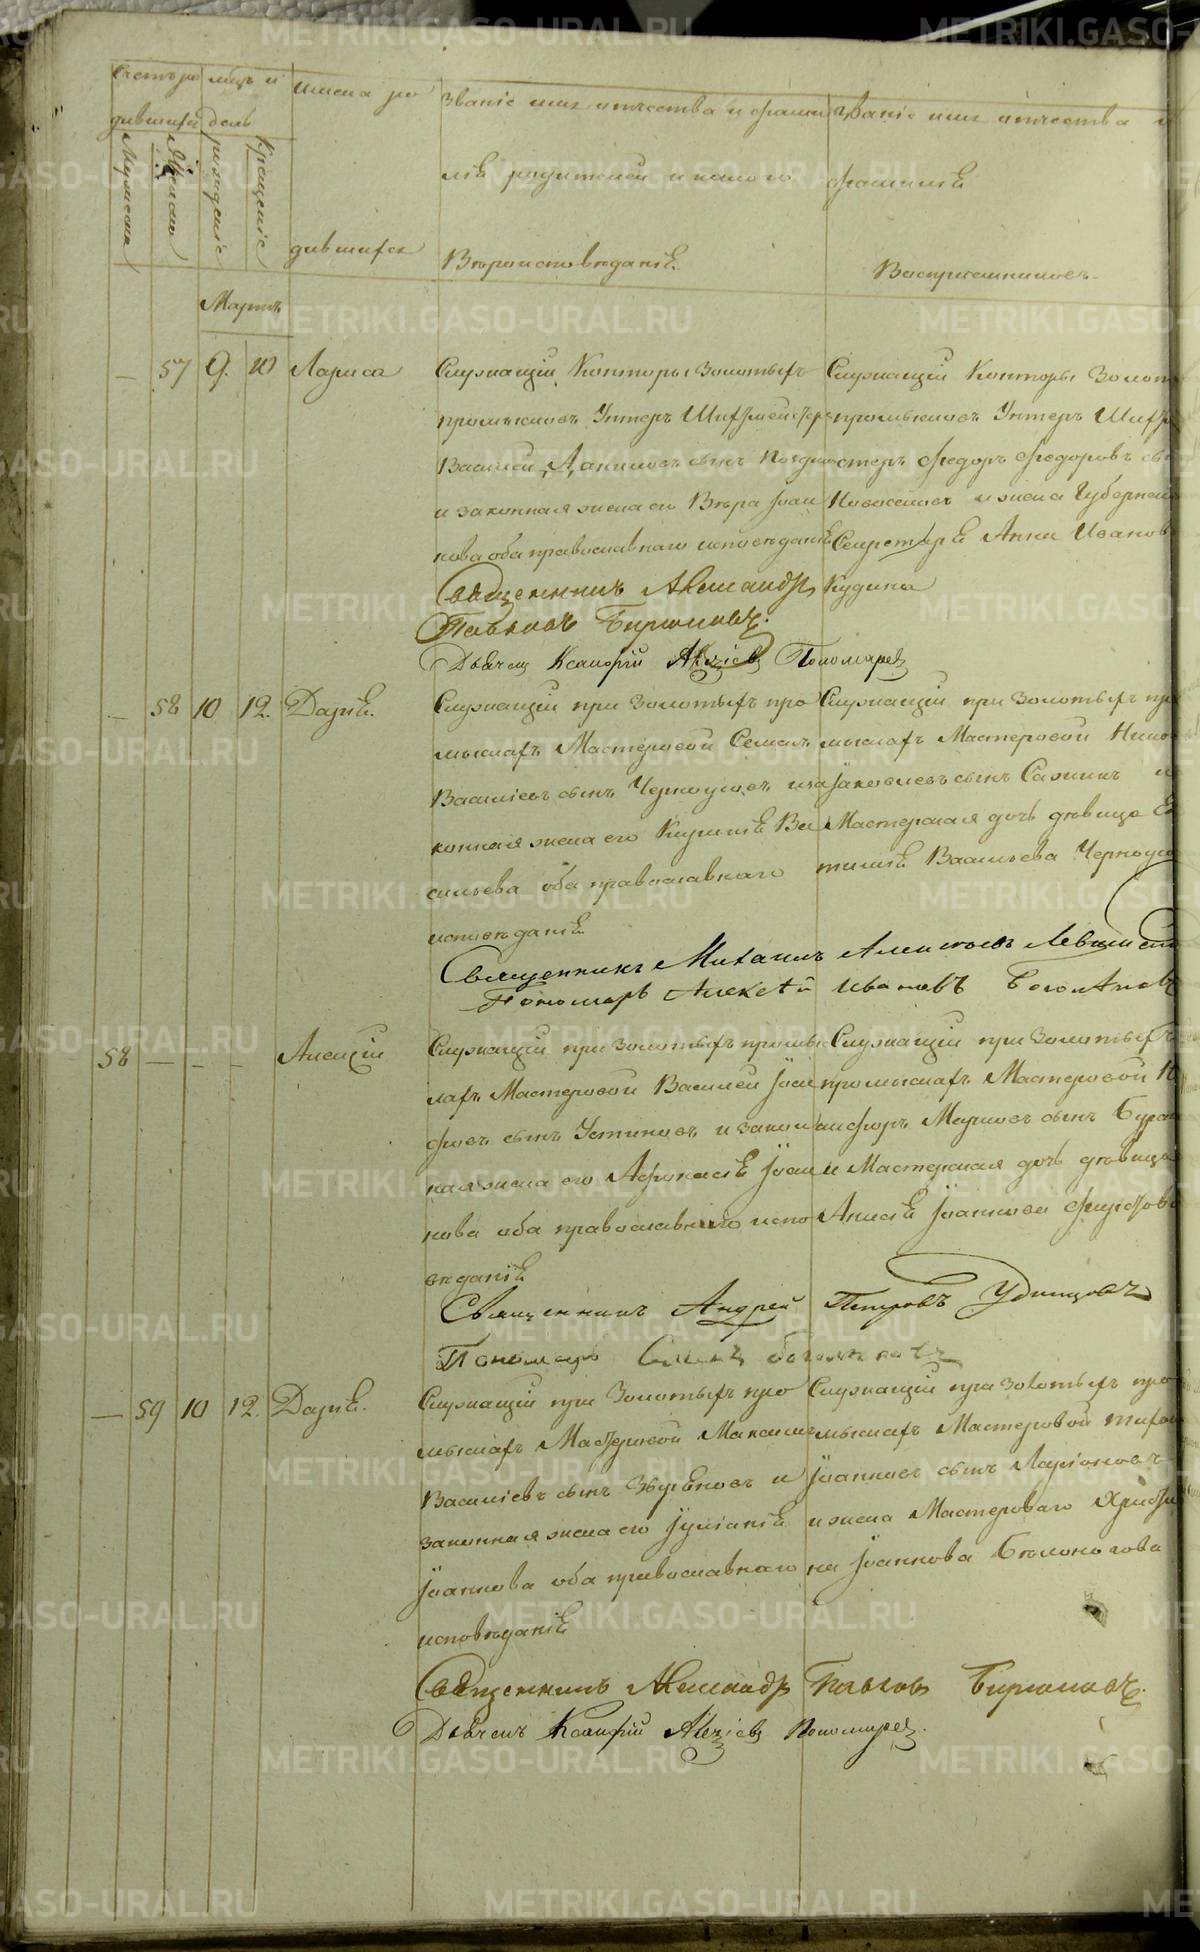 Счетъ ро
дившихся
мѣсяцъ и
день
Мужеска
Женска
рожденіе
Крещеніе
Имена ро
дившихся
Званіе имя отчества и фами
лія родителей и какого
Вѣроисповѣданія.
Званіе имя отчества и
фамилія
Воспріемниковъ
Мартъ
— 57 9. 10 Лариса
Служащій Конторы Золотыхъ
промысловъ Унтеръ Шихтмейстеръ
Василій Даниловъ сынъ
и законная жена его Вѣра Іоан
нова оба православнаго исповѣданія
Служащій Конторы Золот
промысловъ Унтеръ Шихтм
стеръ Федоръ Федоровъ сы
Новоселовъ и жена Губернск
Секретаря Анна Иванов
Кудина
Священникъ Александръ
Павловъ Бирюковъ.
Дьячекъ Ксанфій Пономарев
— 58 10 12. Дарія.
Служащій при Золотыхъ про
мыслахъ Мастеровой Семенъ
Василіевъ сынъ Черноусовъ и за
конная жена его Киликія Ва
сильева оба православнаго
исповѣданія
Служащій при Золотыхъ пр
мыслахъ Мастеровой Нико
Іаковлевъ сынъ Сажинъ и
Мастерская дочь дѣвица
Васильева Черноусо
Священникъ Михаилъ
Пономарь Алексѣй Ивановъ
58 — — — Алексій
Служащій при Золотыхъ промыс
лахъ Мастеровой Василій Іоси
фовъ сынъ Устиновъ и закон
ная жена его Афонасія Іоан
нова оба православнаго испо
вѣданія
Служащій при Золотыхъ
промыслахъ Мастеровой Н
канфоръ Марковъ сынъ
и Мастерская дочь дѣвица
Анисія Іоаннова
Священникъ Андрей Петровъ Удинцовъ
Пономарь
— 59 10 12. Дарія.
Служащій при Золотыхъ про
мыслахъ Мастеровой Максимъ
Василіевъ сынъ и
законная жена его Іуліанія
Іоаннова оба православнаго
исповѣданія
Служащій при Золотыхъ про
мыслахъ Мастеровой Тихон
Іоанновъ сынъ Ларіоновъ
и жена Мастероваго Христи
на Іоаннова Бѣлоногова
Священникъ Александръ Павловъ Бирюковъ.
Дьячекъ Ксанфій Пономарев.
METRIKI.GASO-URAL.RU